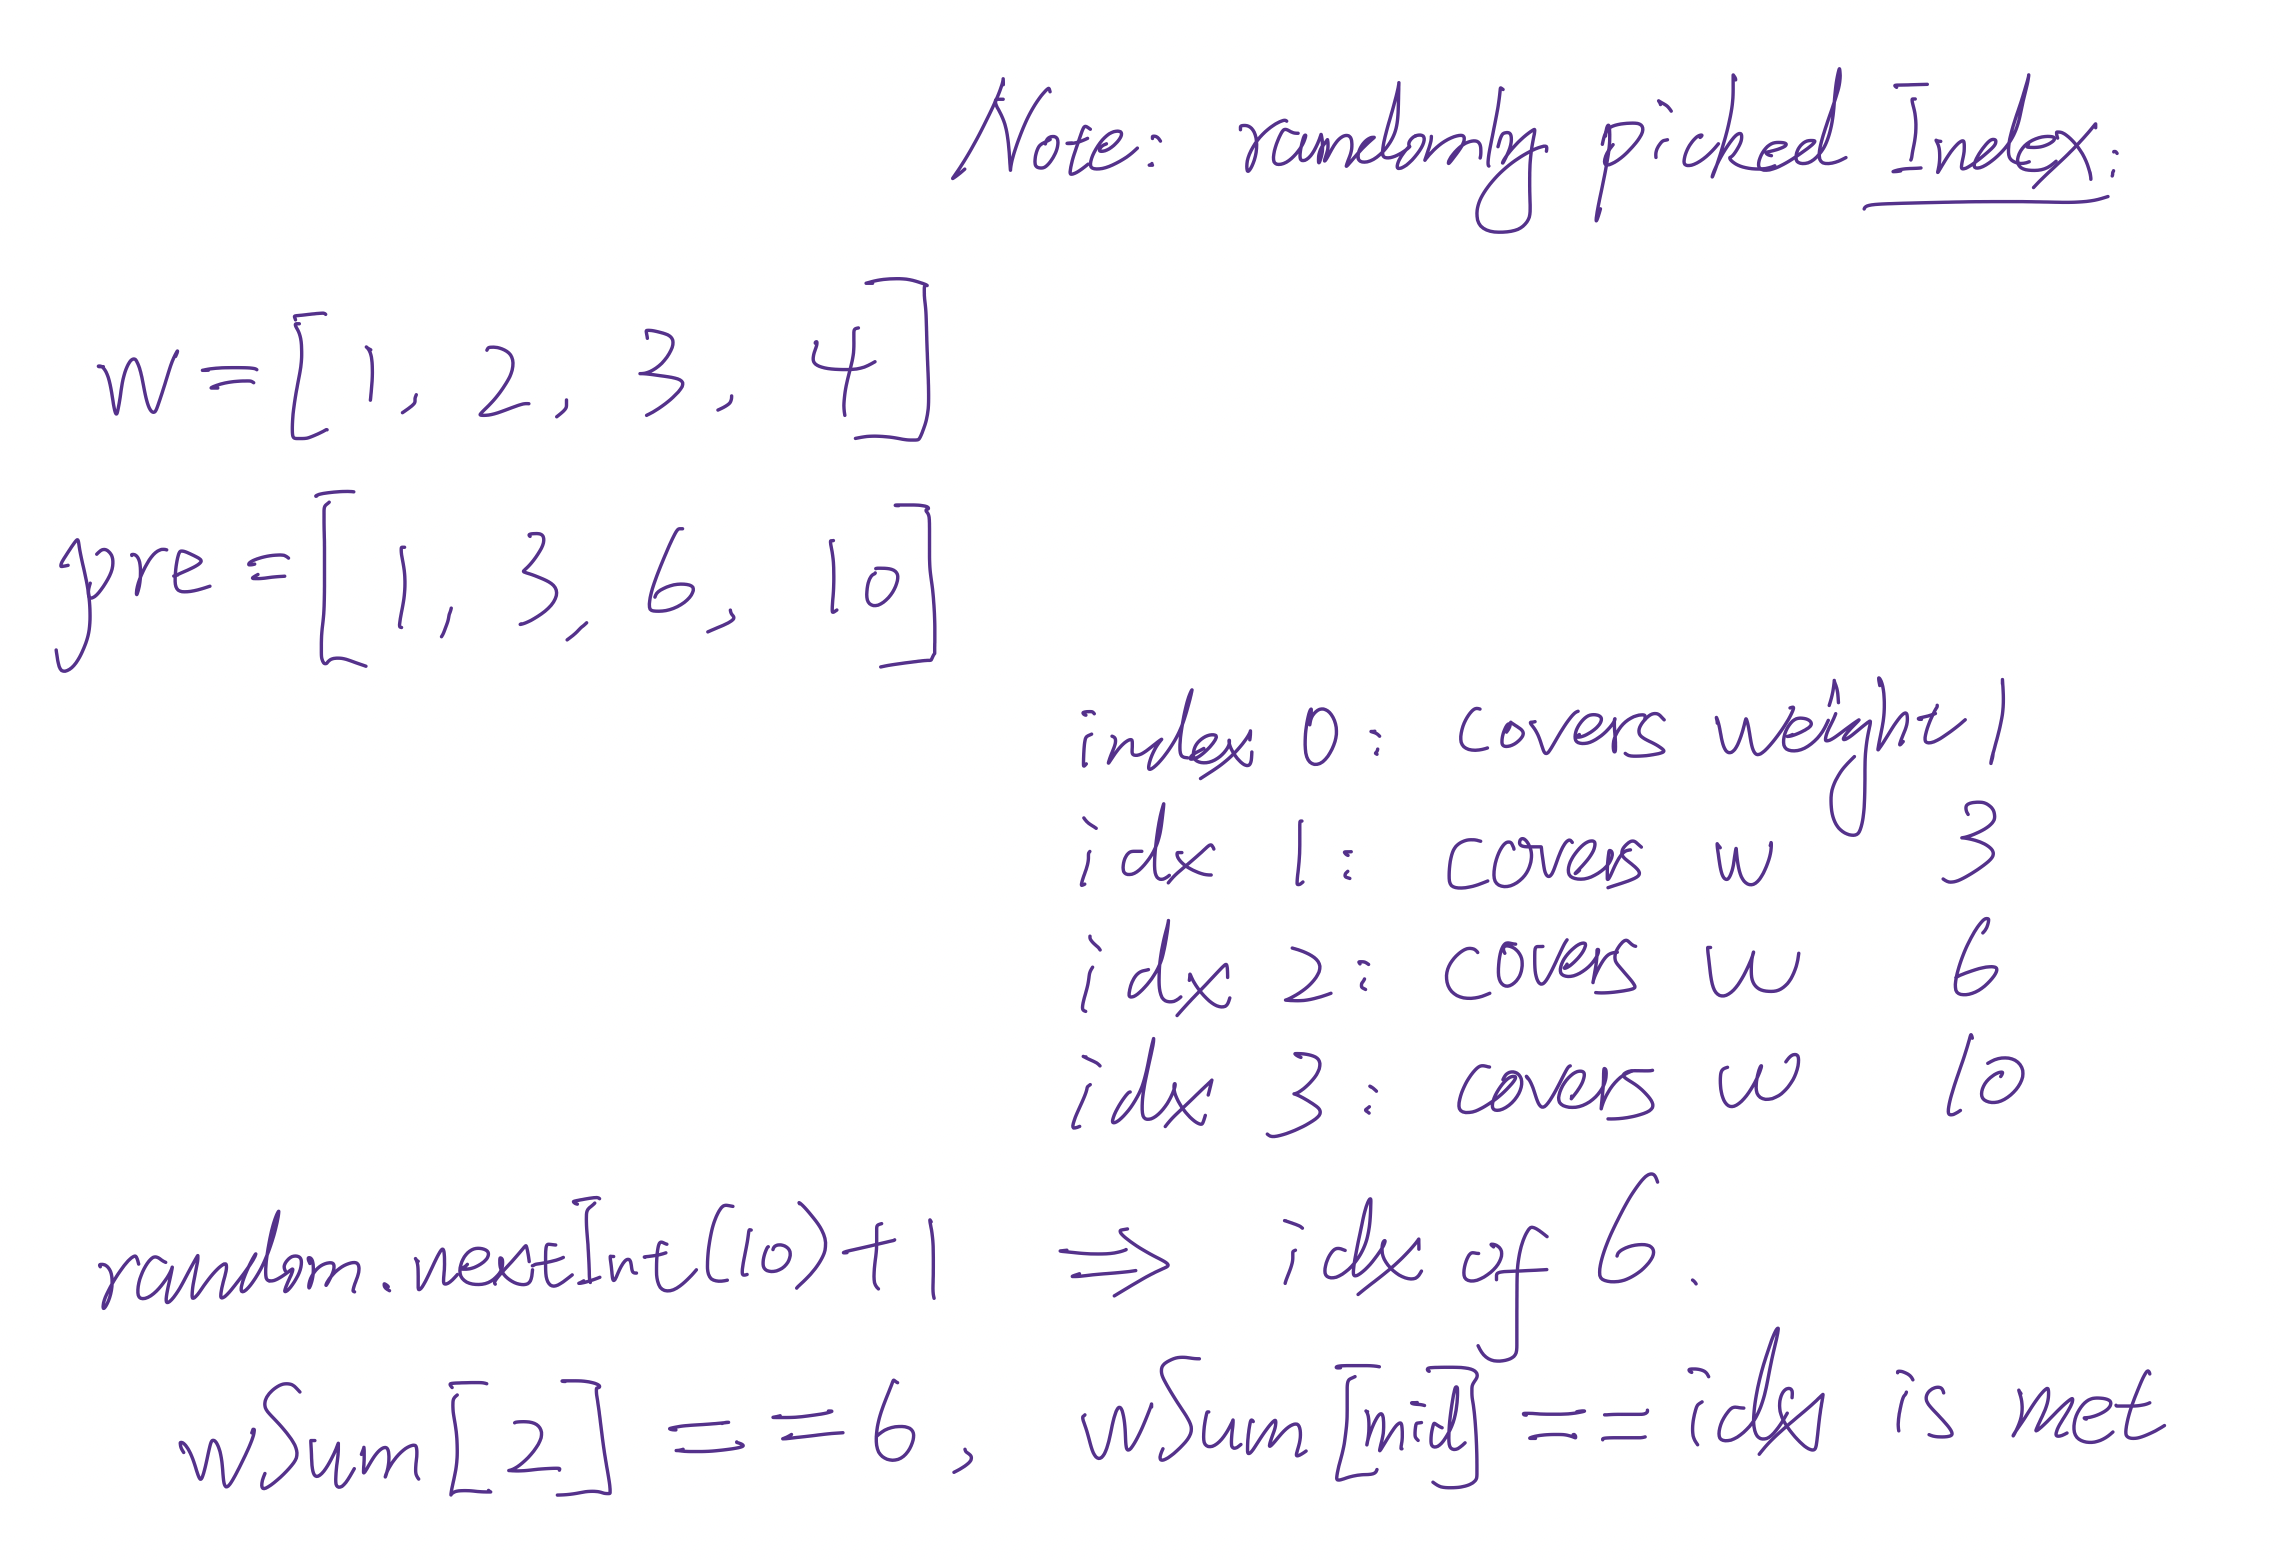 Note: randomly picked Index:
w = [1, 2, 3, 4]
pre = [1, 3, 6, 10]
index 0: covers weight 1
idx 1: covers w 3
idx 2: covers w 6
idx 3: covers w 10
random.nextInt(10)+1 => idx of 6.
wSum[2] == 6, wSum[mid] == idx is met